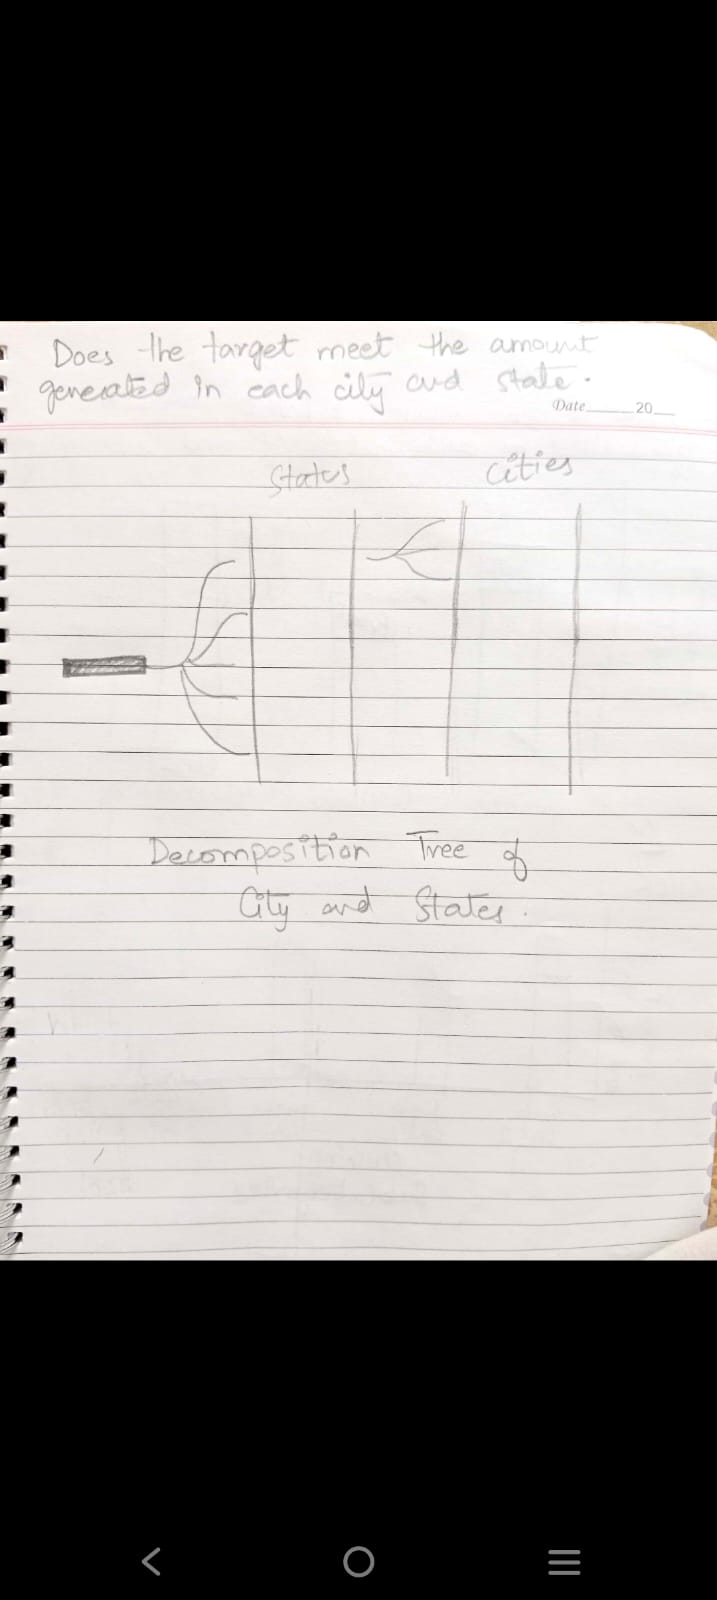 Does the target meet the amount
generated in each city and state.
Date 20
States
Cities
Decomposition Tree of
City and States.